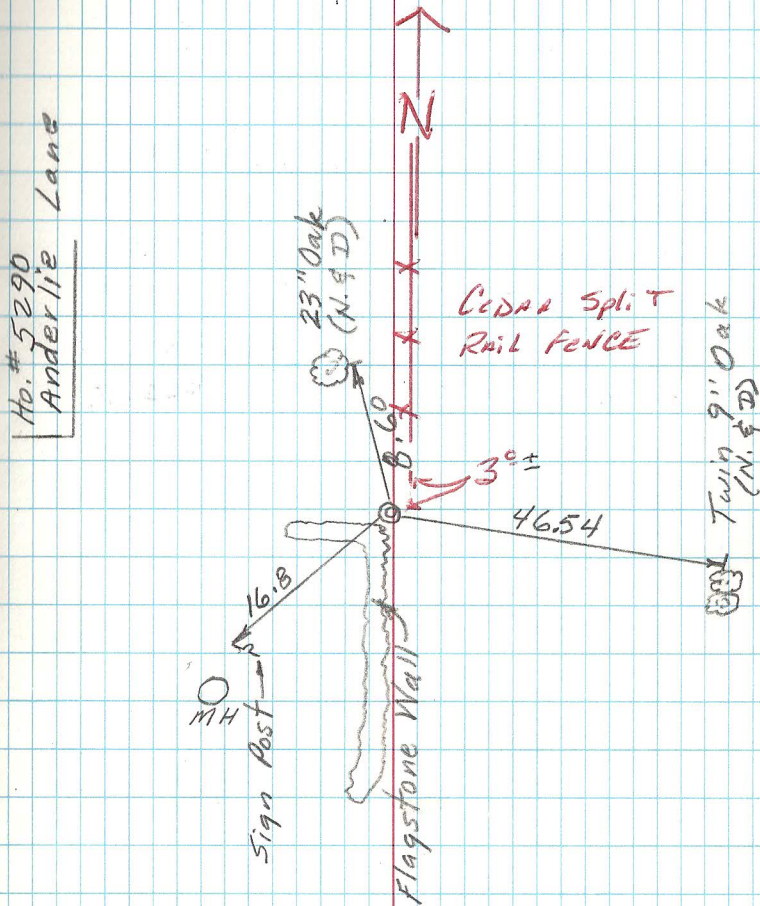 Ho. # 5290
Anderlie Lane
N
23" Oak
(N. & D)
CEDAR Split
RAIL FENCE
8.60
3° ±
46.54
Twin 9" Oak
(N. & D)
16.8
MH
Sign Post
Flagstone Wall